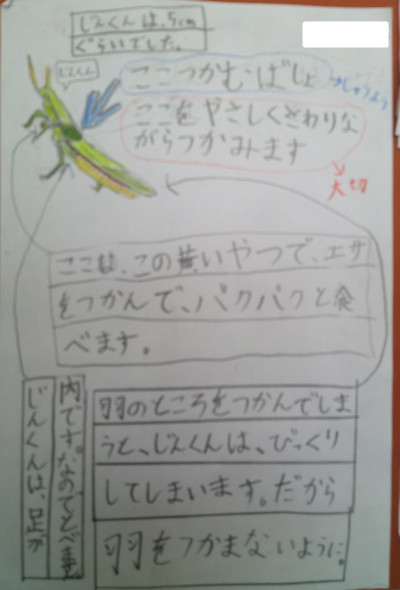 じんくんは、5cm
ぐらいでした。
じんくん
ここつかむばしょ
→じゅうよう
ここをやさしくさわりな
がらつかみます
大切
ここは、この黄いやつで、エサ
をつかんで、パクパクと食
べます。
じんくんは、足が
内です。なのでとべま
羽のところをつかんでしま
うと、じんくんは、びっくり
してしまいます。だから
羽をつかまないように。